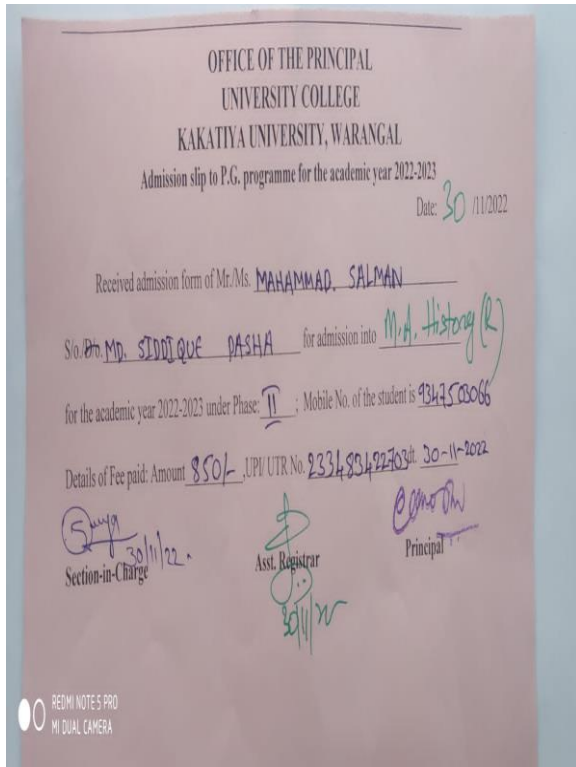 OFFICE OF THE PRINCIPAL
UNIVERSITY COLLEGE
KAKATIYA UNIVERSITY, WARANGAL
Admission slip to P.G. programme for the academic year 2022-2023
Date: 30 /11/2022
Received admission form of Mr./Ms. MAHAMMAD. SALMAN
S/o./D/o. MD. SIDDIQUE PASHA for admission into M.A. History (R)
for the academic year 2022-2023 under Phase: II ; Mobile No. of the student is 9347503066
Details of Fee paid: Amount 850/- ,UPI/ UTR No. 233483422703 dt. 30-11-2022
30/11/22.
Section-in-Charge Asst. Registrar Principal
30/11/22
REDMI NOTE 5 PRO
MI DUAL CAMERA